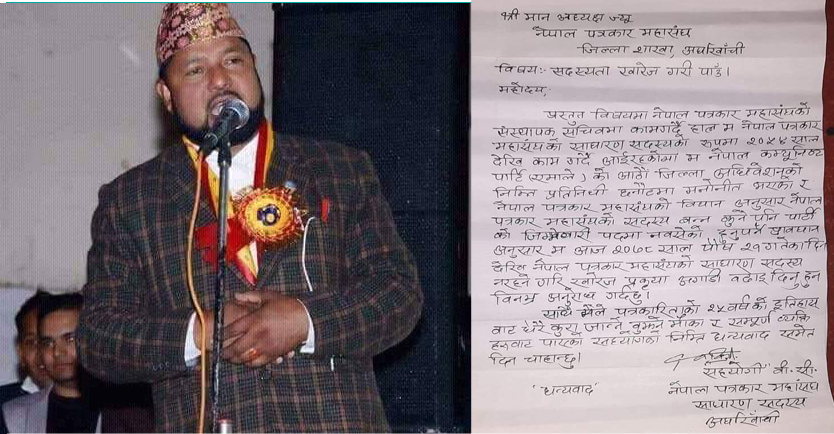 श्री मान अध्यक्ष ज्यू
नेपाल पत्रकार महासंघ
जिल्ला शाखा, अर्घाखाँची
विषय:- सदस्यता खारेज गरी पाउँ।
महोदय,
प्रस्तुत विषयमा नेपाल पत्रकार महासंघको
संस्थापक सचिवमा काम गर्दै हाल म नेपाल पत्रकार
महासंघको साधारण सदस्यको रुपमा २०५४ साल
देखि काम गर्दै आईरहेकोमा म नेपाल कम्युनिष्ट
पार्टि (एमाले) को आठौं जिल्ला अधिवेशनको
निम्ति प्रतिनिधी छनौटमा मनोनीत भएको र
नेपाल पत्रकार महासंघको विधान अनुसार नेपाल
पत्रकार महासंघको सदस्य बन्न कुनै पनि पार्टी
को जिम्मेवारी पदमा नबसेको हुनुपर्ने प्रावधान
अनुसार म आज २०७८ साल पौष २१ गतेका दिन
देखि नेपाल पत्रकार महासंघको साधारण सदस्य
नरहने गरि खारेज प्रकृया अगाडी बढाई दिनु हुन
विनम्र अनुरोध गर्दछु।
साथै मैले पत्रकारिताको २५ वर्षको इतिहास
बाट धेरै कुरा जान्ने बुझ्ने मौका र सम्पूर्ण व्यक्ति
हरुबाट पाएको सहयोगको निम्ति धन्यवाद समेत
दिन चाहान्छु।
सहयोगी वी.सी.
'धन्यवाद' नेपाल पत्रकार महासंघ
साधारण सदस्य
अर्घाखाँची